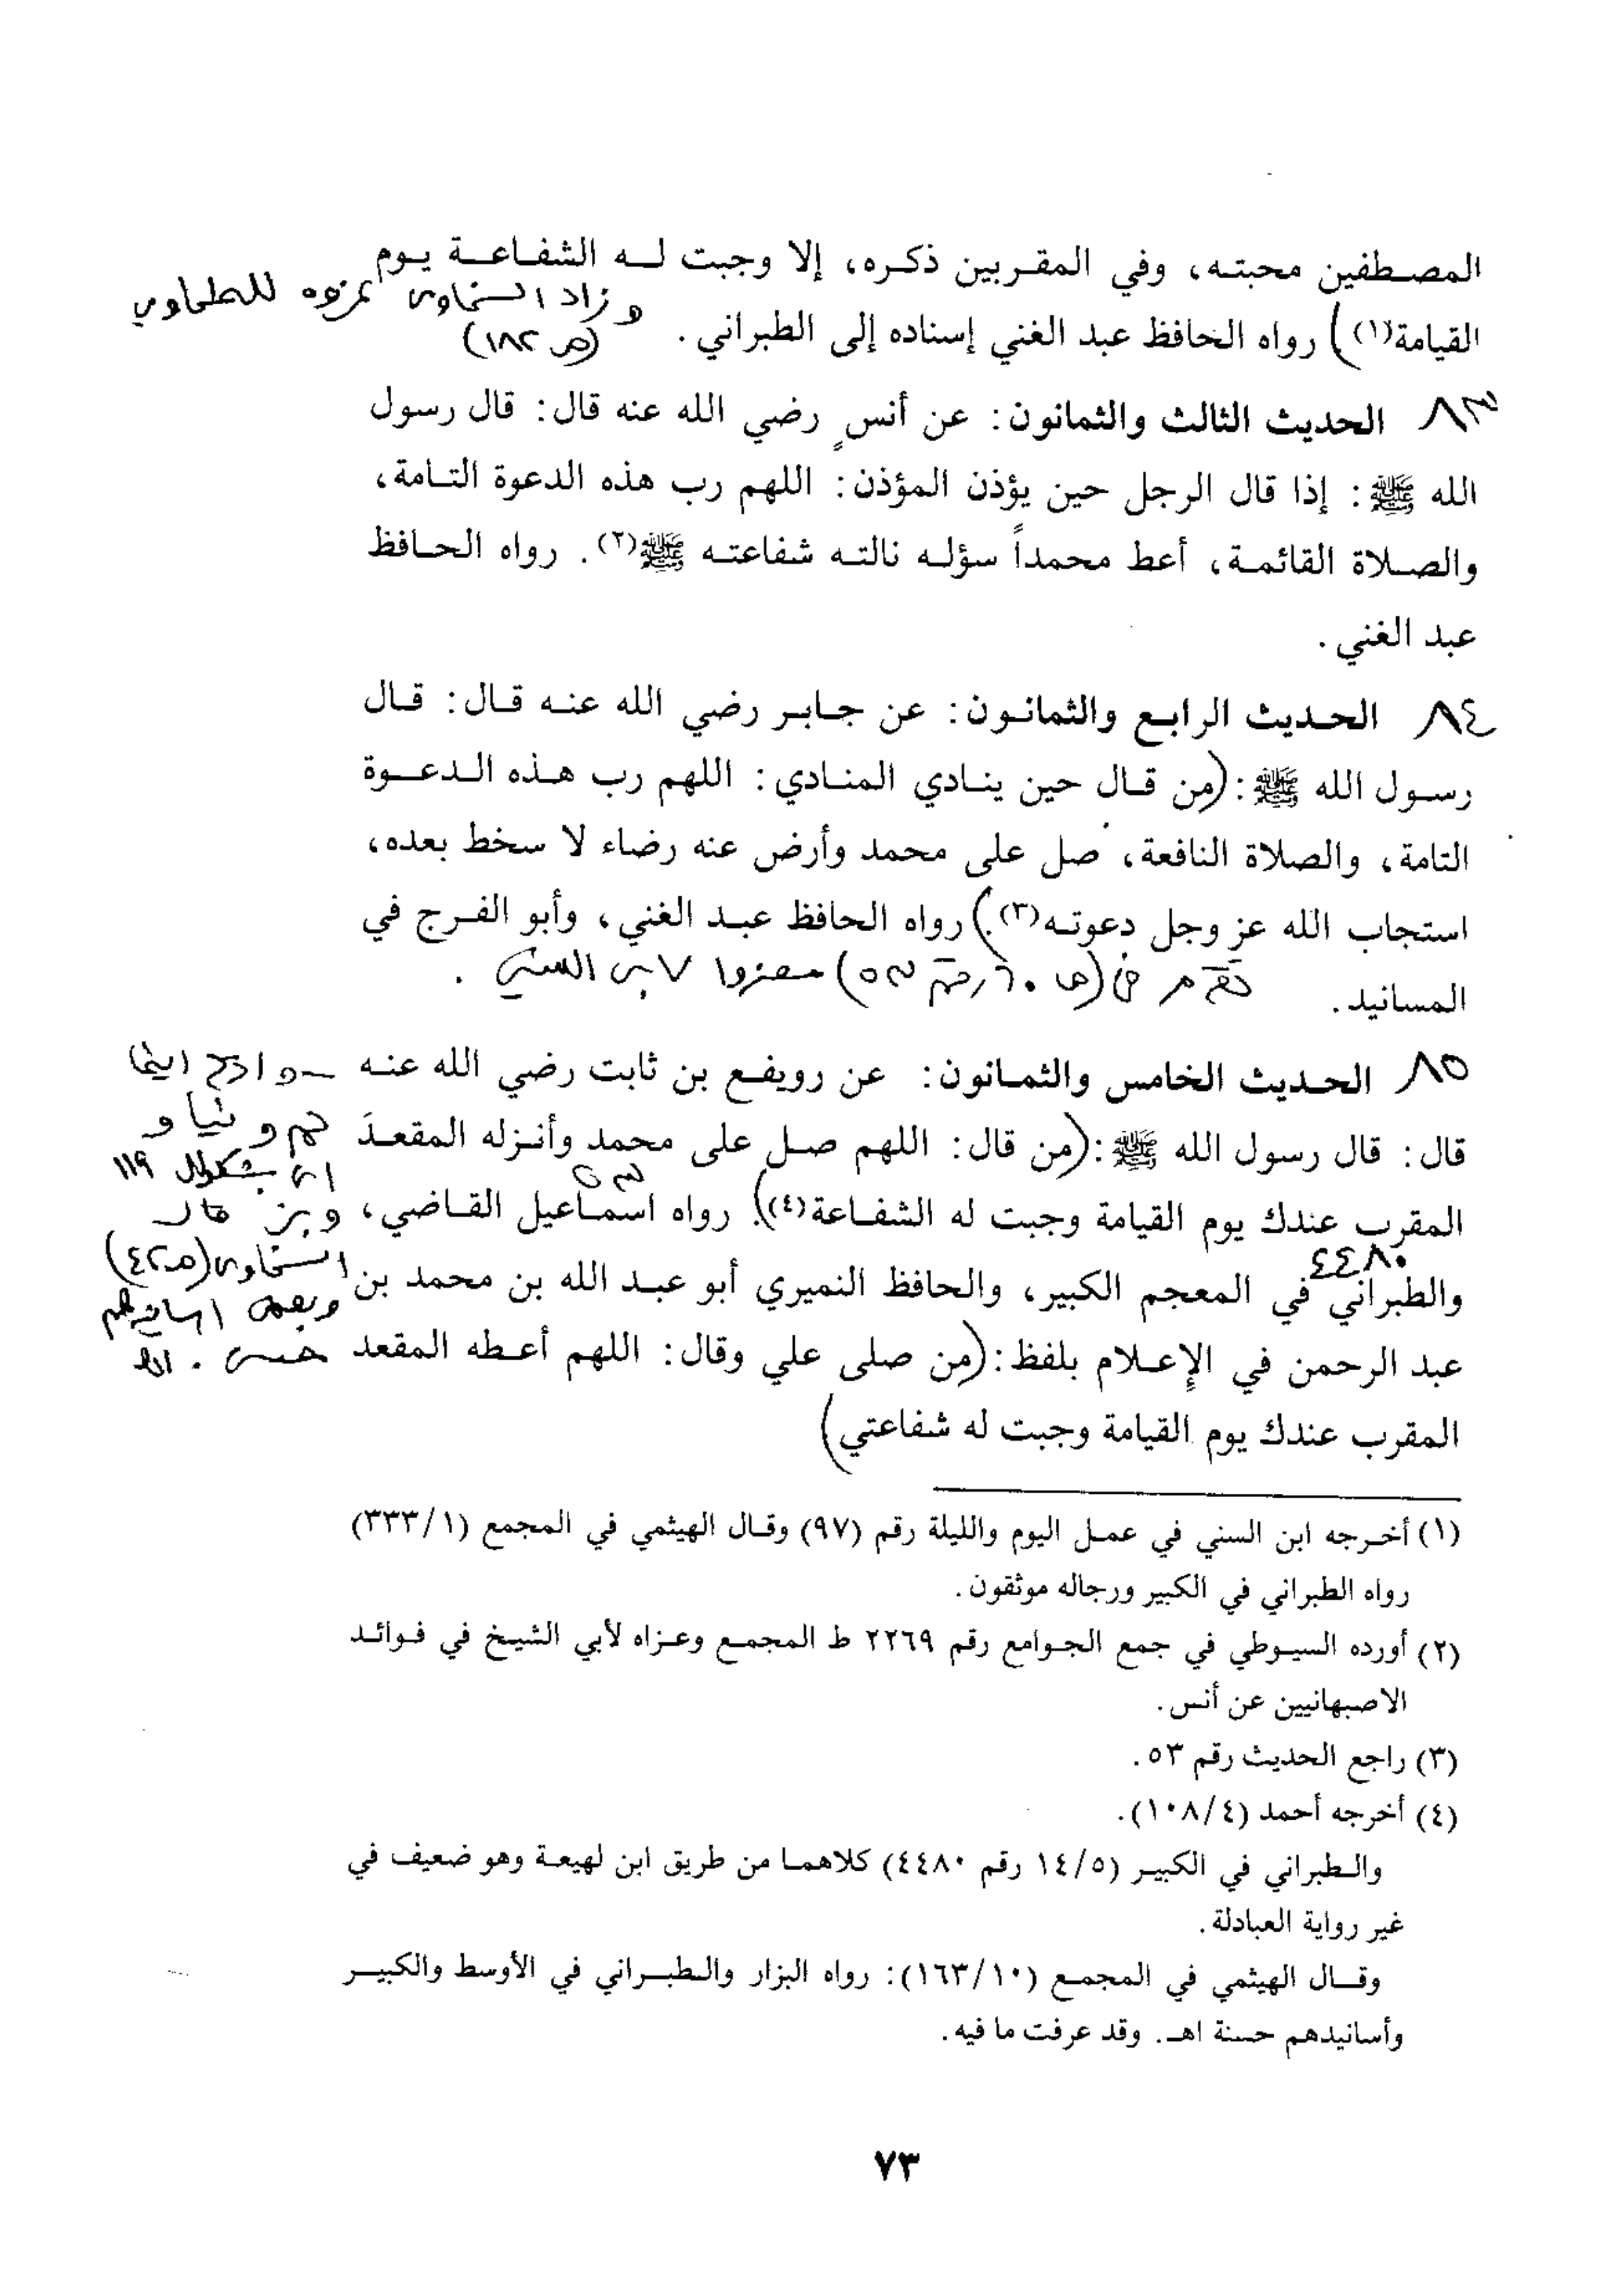 المصطفين محبته، وفي المقربين ذكره، إلا وجبت له الشفاعة يوم
و زاد السخاوي عزوه للطحاوي
القيامة(١)) رواه الحافظ عبد الغني إسناده إلى الطبراني .
(ص ١٨٢)
٨٣ الحديث الثالث والثمانون: عن أنسٍ رضي الله عنه قال: قال رسول
الله ﷺ: إذا قال الرجل حين يؤذن المؤذن: اللهم رب هذه الدعوة التامة،
والصلاة القائمة، أعط محمداً سؤله نالته شفاعته ﷺ(٢). رواه الحافظ
عبد الغني.
٨٤ الحديث الرابع والثمانون: عن جابر رضي الله عنه قال: قال
رسول الله ﷺ: (من قال حين ينادي المنادي: اللهم رب هذه الدعوة
التامة، والصلاة النافعة، صل على محمد وأرض عنه رضاء لا سخط بعده،
استجاب الله عز وجل دعوته(٣).) رواه الحافظ عبد الغني، وأبو الفرج في
المسانيد. تقدم في (ص ٦٠ رقم ٥٣) معزوا لابن السني .
٨٥ الحديث الخامس والثمانون: عن رويفع بن ثابت رضي الله عنه
قال: قال رسول الله ﷺ: (من قال: اللهم صل على محمد وأنزله المقعدَ
المقرب عندك يوم القيامة وجبت له الشفاعة(٤)). رواه اسماعيل القاضي،
٥٣
والطبراني في المعجم الكبير، والحافظ النميري أبو عبد الله بن محمد بن
٤٤٨٠
عبد الرحمن في الإعلام بلفظ: (من صلى علي وقال: اللهم أعطه المقعد
المقرب عندك يوم القيامة وجبت له شفاعتي)
ابن بشكوال ١١٩
السخاوي (ص ٤٢)
وبعض أسانيدهم
حسن . اهـ
(١) أخرجه ابن السني في عمل اليوم والليلة رقم (٩٧) وقال الهيثمي في المجمع (٣٣٣/١)
رواه الطبراني في الكبير ورجاله موثقون.
(٢) أورده السيوطي في جمع الجوامع رقم ٢٢٦٩ ط المجمع وعزاه لأبي الشيخ في فوائد
الاصبهانيين عن أنس.
(٣) راجع الحديث رقم ٥٣.
(٤) أخرجه أحمد (١٠٨/٤).
والطبراني في الكبير (١٤/٥ رقم ٤٤٨٠) كلاهما من طريق ابن لهيعة وهو ضعيف في
غير رواية العبادلة.
وقال الهيثمي في المجمع (١٦٣/١٠): رواه البزار والطبراني في الأوسط والكبير
وأسانيدهم حسنة اهـ. وقد عرفت ما فيه.
٧٣